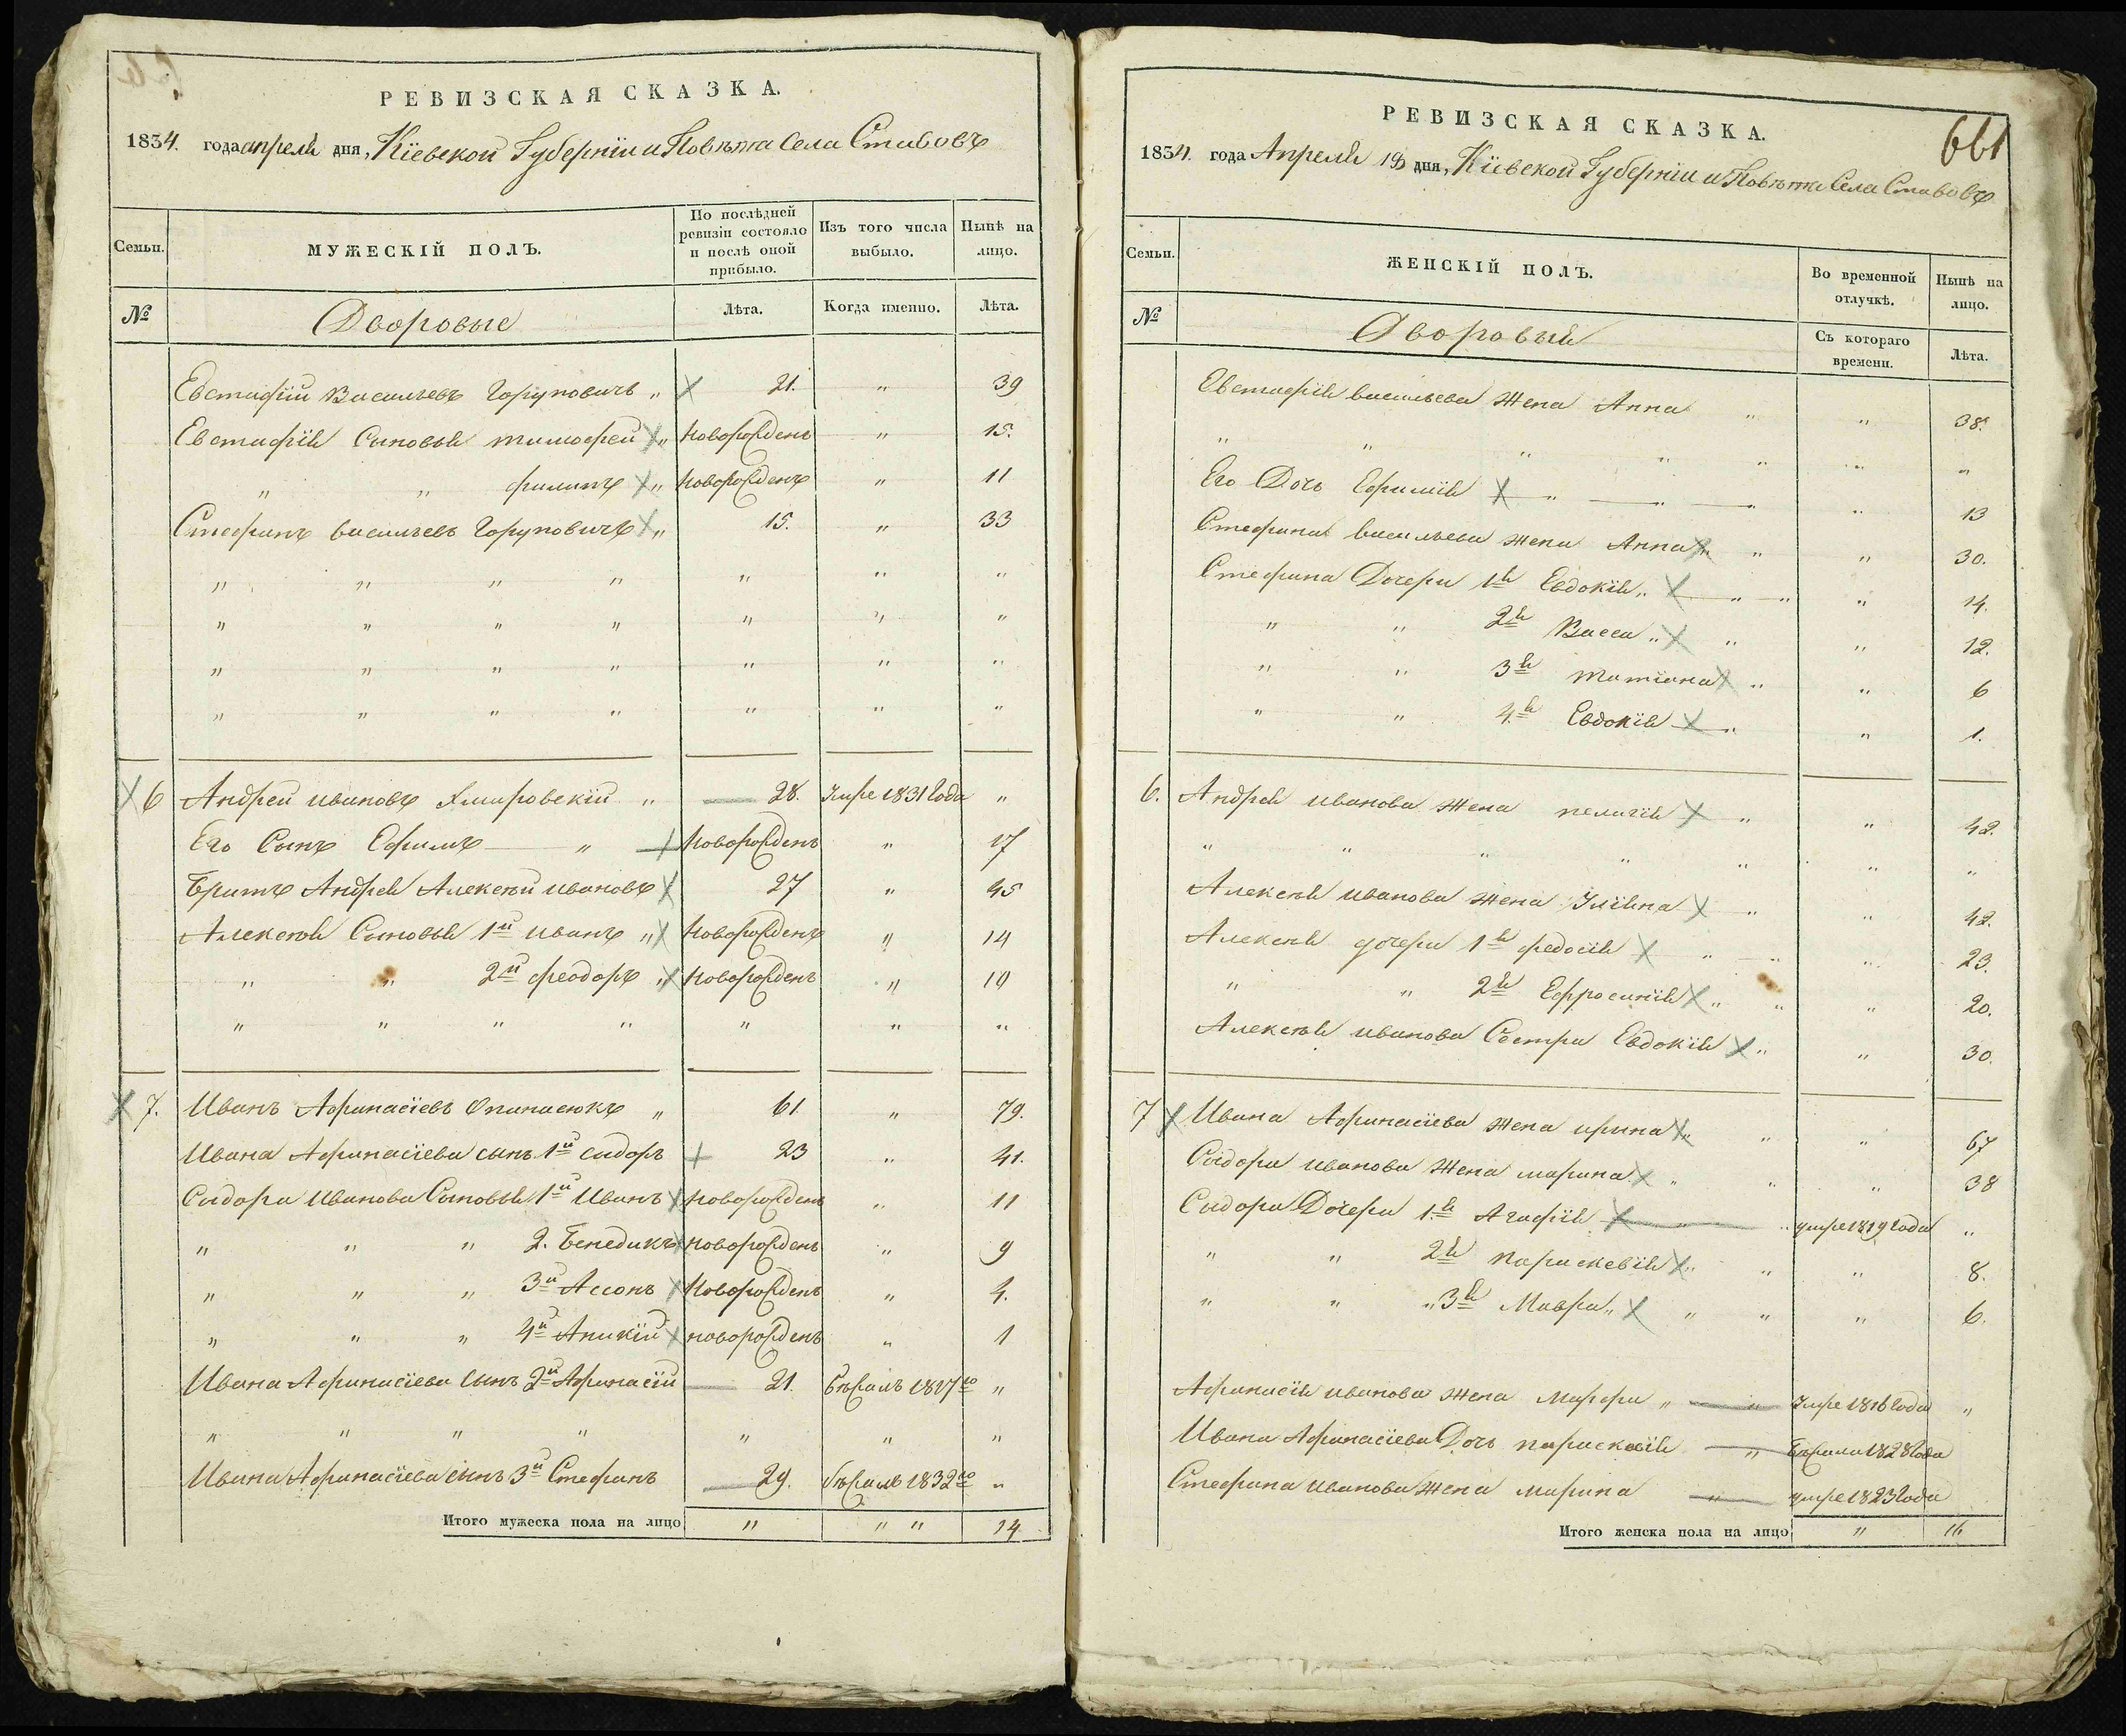 РЕВИЗСКАЯ СКАЗКА.
1834. года апреля дня, Кіевской Губерніи и Повѣта Села Ставовъ
Семьи.
МУЖЕСКІЙ ПОЛЪ.
По послѣдней ревизіи состояло и послѣ оной прибыло.
Изъ того числа выбыло.
Нынѣ на лицо.
№
Дворовые
Лѣта.
Когда именно.
Лѣта.
Евстафій Васильевъ Горуновичъ „ 21. „ 39
Евстафія Сыновья тимофей „ новорожденъ „ 15.
„ „ филипъ „ новорожденъ „ 11
Стефанъ васильевъ Горуновичъ „ 15. „ 33
„ „ „ „ „ „ „
„ „ „ „ „ „ „
„ „ „ „ „ „ „
„ „ „ „ „ „ „
6 Андрей ивановъ „ 28. Умре 1831 года „
Его Сынъ Ефимъ „ новорожденъ „ 17
Братъ Андрея Алексѣй ивановъ 27 „ 45
Алексѣя Сыновья 1й иванъ „ новорожденъ „ 14
„ „ 2й феодоръ „ новорожденъ „ 10
„ „ „ „ „ „ „
7. Иванъ Афанасіевъ Опанасюкъ „ 61. „ 79.
Ивана Афанасіева сынъ 1й сидоръ 23 „ 41.
Сидора Иванова Сыновья 1й Иванъ новорожденъ „ 11
„ „ „ 2. Бенедикъ новорожденъ „ 9
„ „ „ 3й Ассонъ новорожденъ „ 4.
„ „ „ 4й Аникій новорожденъ „ 1
Ивана Афанасіева сынъ 2й Афанасій 21. бѣжалъ 1827го „
„ „ „ „ „ „ „
Ивана Афанасіева сынъ 3й Стефанъ 29. бѣжалъ 1832го „
Итого мужеска пола на лицо „ „ „ 14
РЕВИЗСКАЯ СКАЗКА.
661
1834. года Апреля 19 дня, Кіевской Губерніи и Повѣта Села Ставовъ
Семьи.
ЖЕНСКІЙ ПОЛЪ.
Во временной отлучкѣ.
Нынѣ на лицо.
№
Дворовыя
Съ котораго времени.
Лѣта.
Евстафія васильева жена Анна „ „ 38.
„ „ „ „ „ „ „
Его Дочь Ефимія „ „ „ „ 13
Стефана васильева жена Анна „ „ „ 30.
Стефана Дочери 1я Евдокія „ „ „ „ 14.
„ „ 2я Васса „ „ „ 12.
„ „ 3я татіана „ „ 6
„ „ 4я Евдокія „ „ 1.
6. Андрея иванова жена пелагія „ „ 42.
„ „ „ „ „ „ „
Алексѣя иванова жена Уліяна „ „ 42.
Алексѣя дочери 1я федосія „ „ „ 23.
„ „ 2я Ефросинія „ „ „ 20.
Алексѣя иванова Сестра Евдокія „ „ 30.
7 Ивана Афанасіева жена ирина „ „ „ 67
Сидора иванова жена марина „ „ „ 38
Сидора Дочери 1я Агафія „ „ умре 1819 года „
„ „ 2я параскевія „ „ „ 8.
„ „ „ 3я Мавра „ „ „ „ 6.
Афанасія иванова жена Марфа „ „ Умре 1816 года „
Ивана Афанасіева Дочь параскевія „ бѣжала 1828 года
Стефана иванова жена марина „ умре 1823 года
Итого женска пола на лицо „ 16